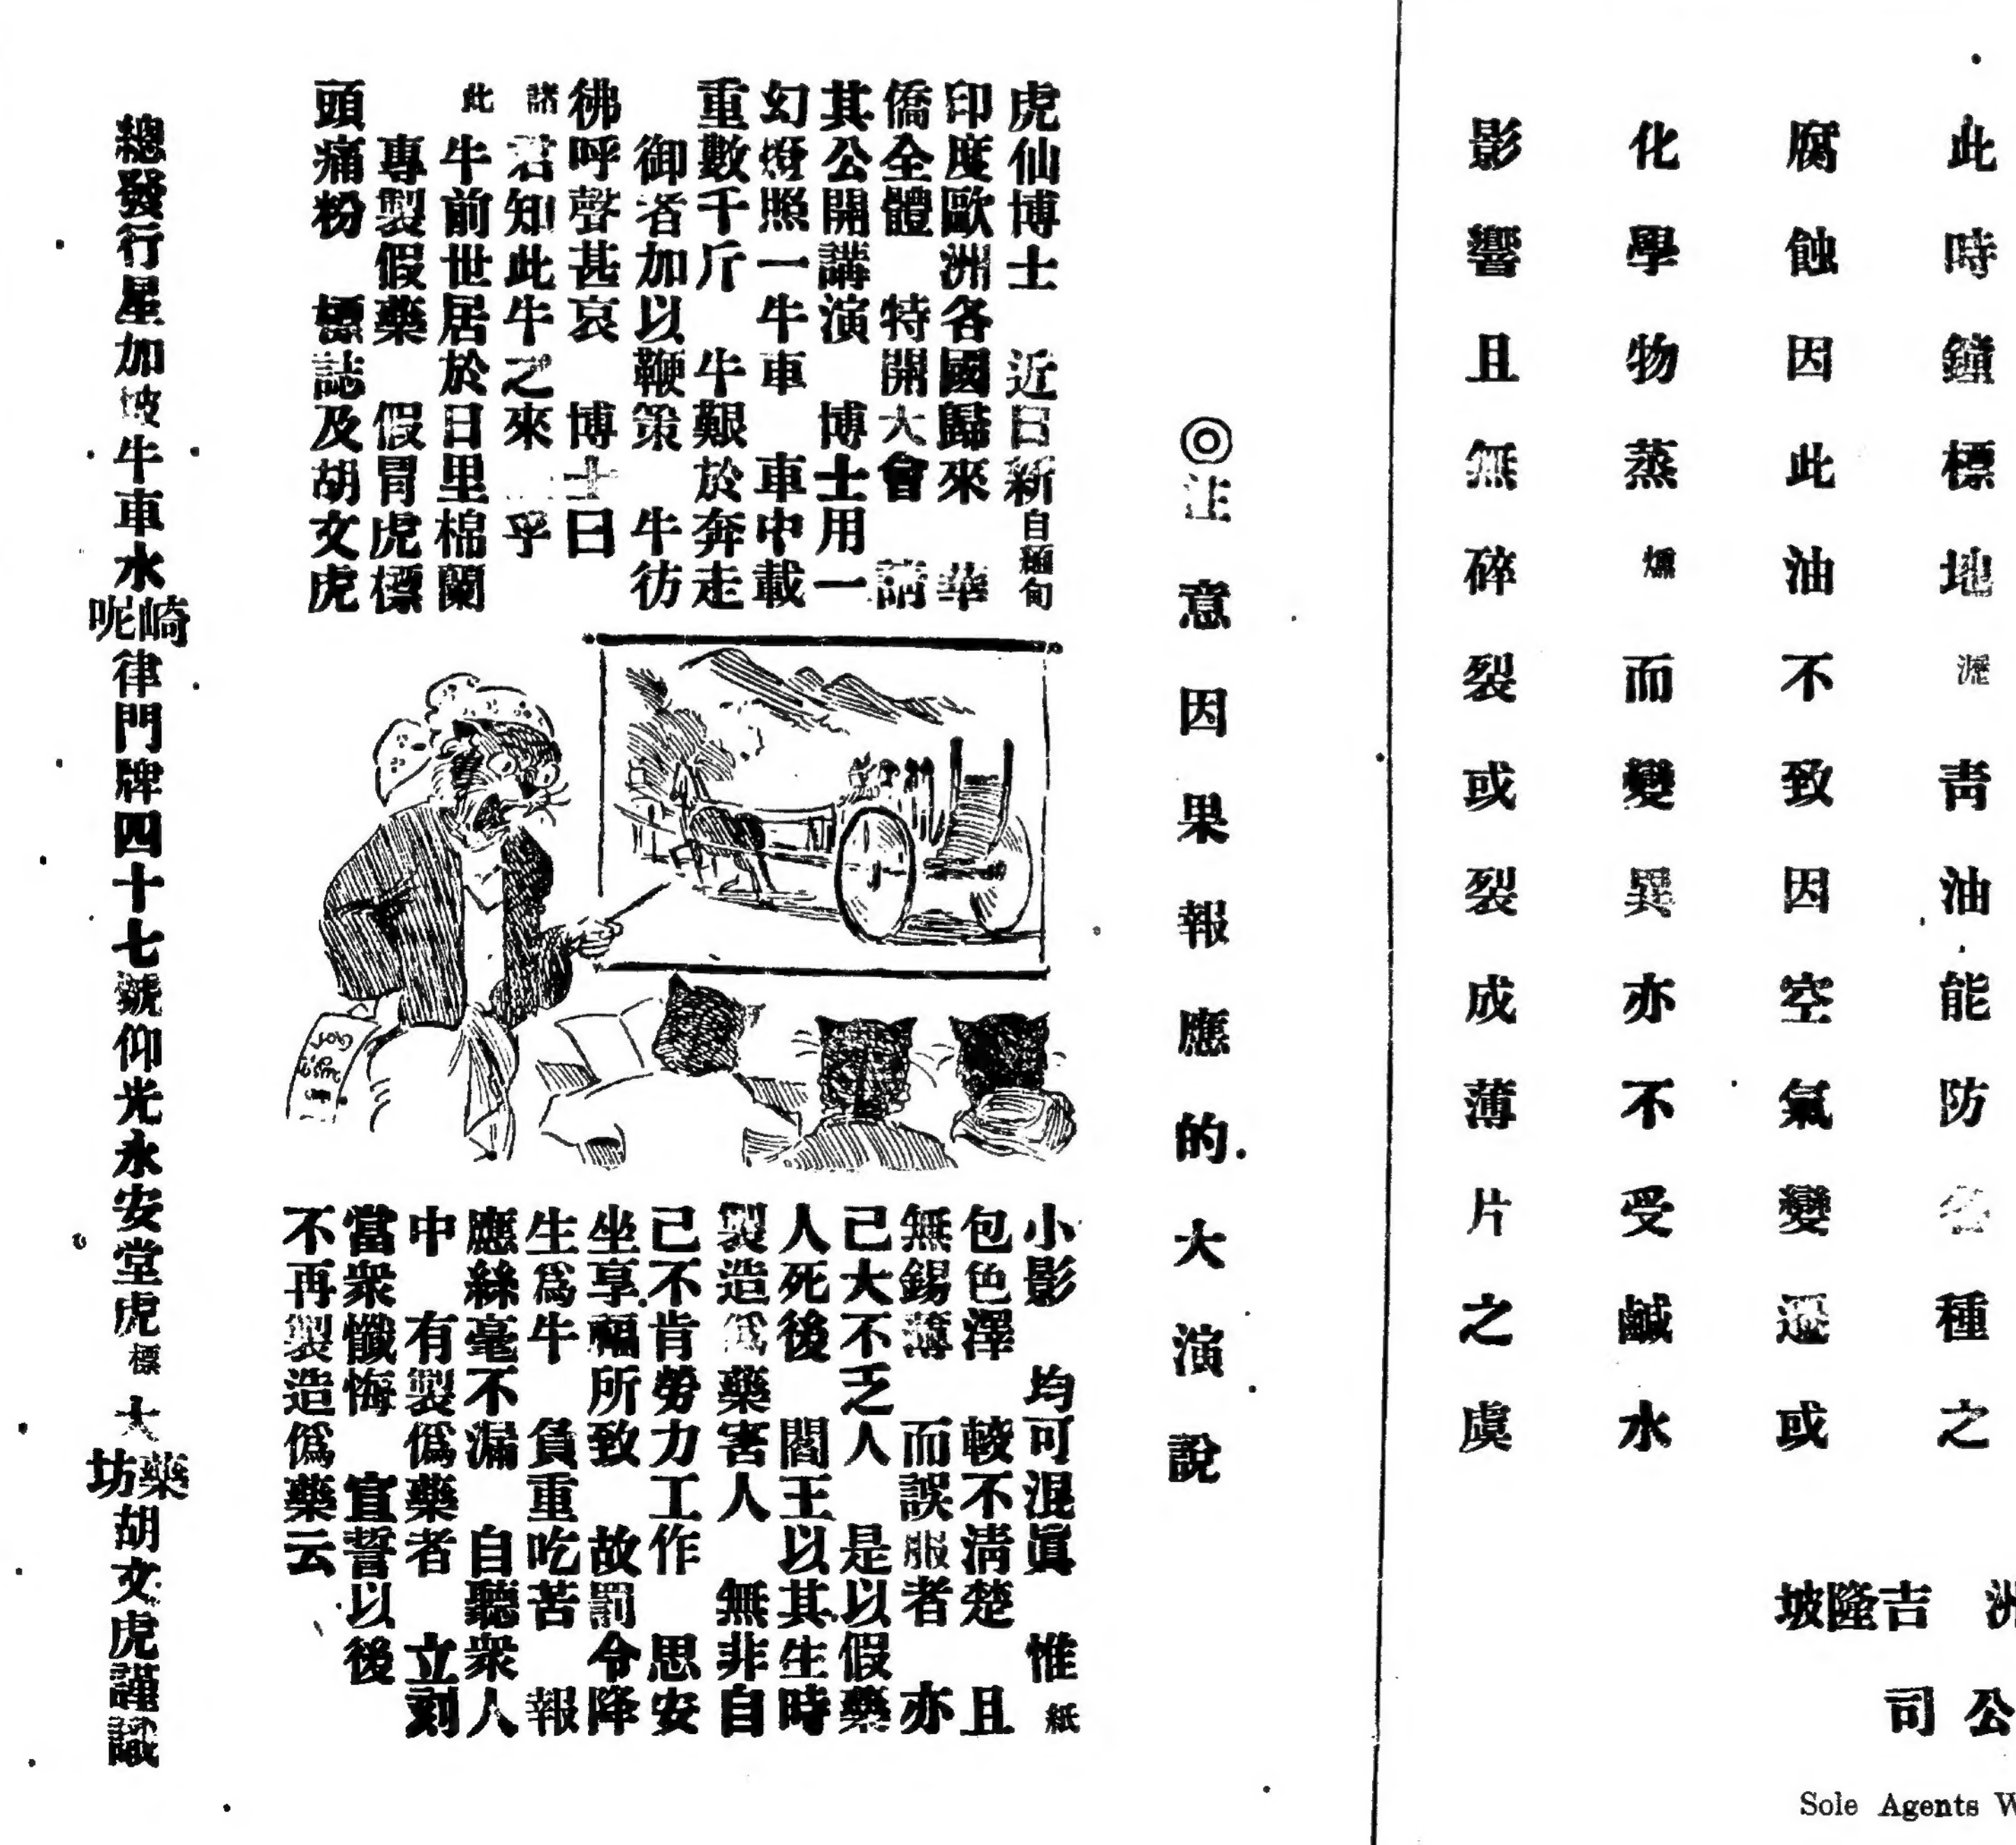 此時鐘標地瀝青油能防各種之
腐蝕因此油不致因空氣變遷或
化學物蒸燻而變異亦不受鹹水
影響且無碎裂或裂成薄片之虞
洲 吉隆坡
公司
Sole Agents W
◎注意因果報應的大演說
虎仙博士 近日新自緬甸
印度歐洲各國歸來 華
僑全體 特開大會 請
其公開講演 博士用一
幻燈照一牛車 車中載
重數千斤 牛艱於奔走
御者加以鞭策 牛彷
彿呼聲甚哀 博士曰
諸君知此牛之來 乎
此牛前世居於日里棉蘭
專製假藥 假冒虎標
頭痛粉 標誌及胡文虎
小影 均可混眞 惟紙
包色澤 較不清楚 且
無錫薄 而誤服者 亦
己大不乏人 是以假藥
人死後 閻王以其生時
製造僞藥害人 無非自
己不肯勞力工作 思安
坐享福所致 故罰令降
生爲牛 負重吃苦 報
應絲毫不漏 自聽衆人
中 有製僞藥者 立刻
當衆懺悔 宣誓以後
不再製造僞藥云
總發行星加坡牛車水崎呢律門牌四十七號仰光永安堂虎標大藥坊胡文虎謹識